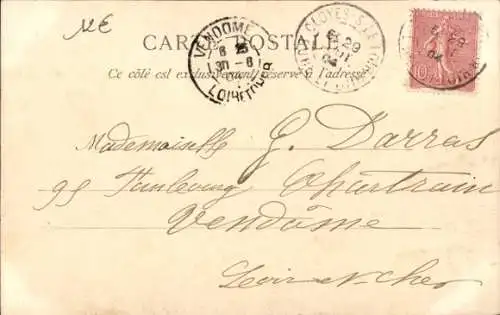 ME
CARTE POSTALE
Ce côté est exclusivement réservé à l'adresse
VENDOME
6 25
30 -6
LOIR-ET-CHER
CLOYES
29
04
10
Mademoiselle G. Darras
99 Faubourg Chartrain
Vendôme
Loir-et-Cher